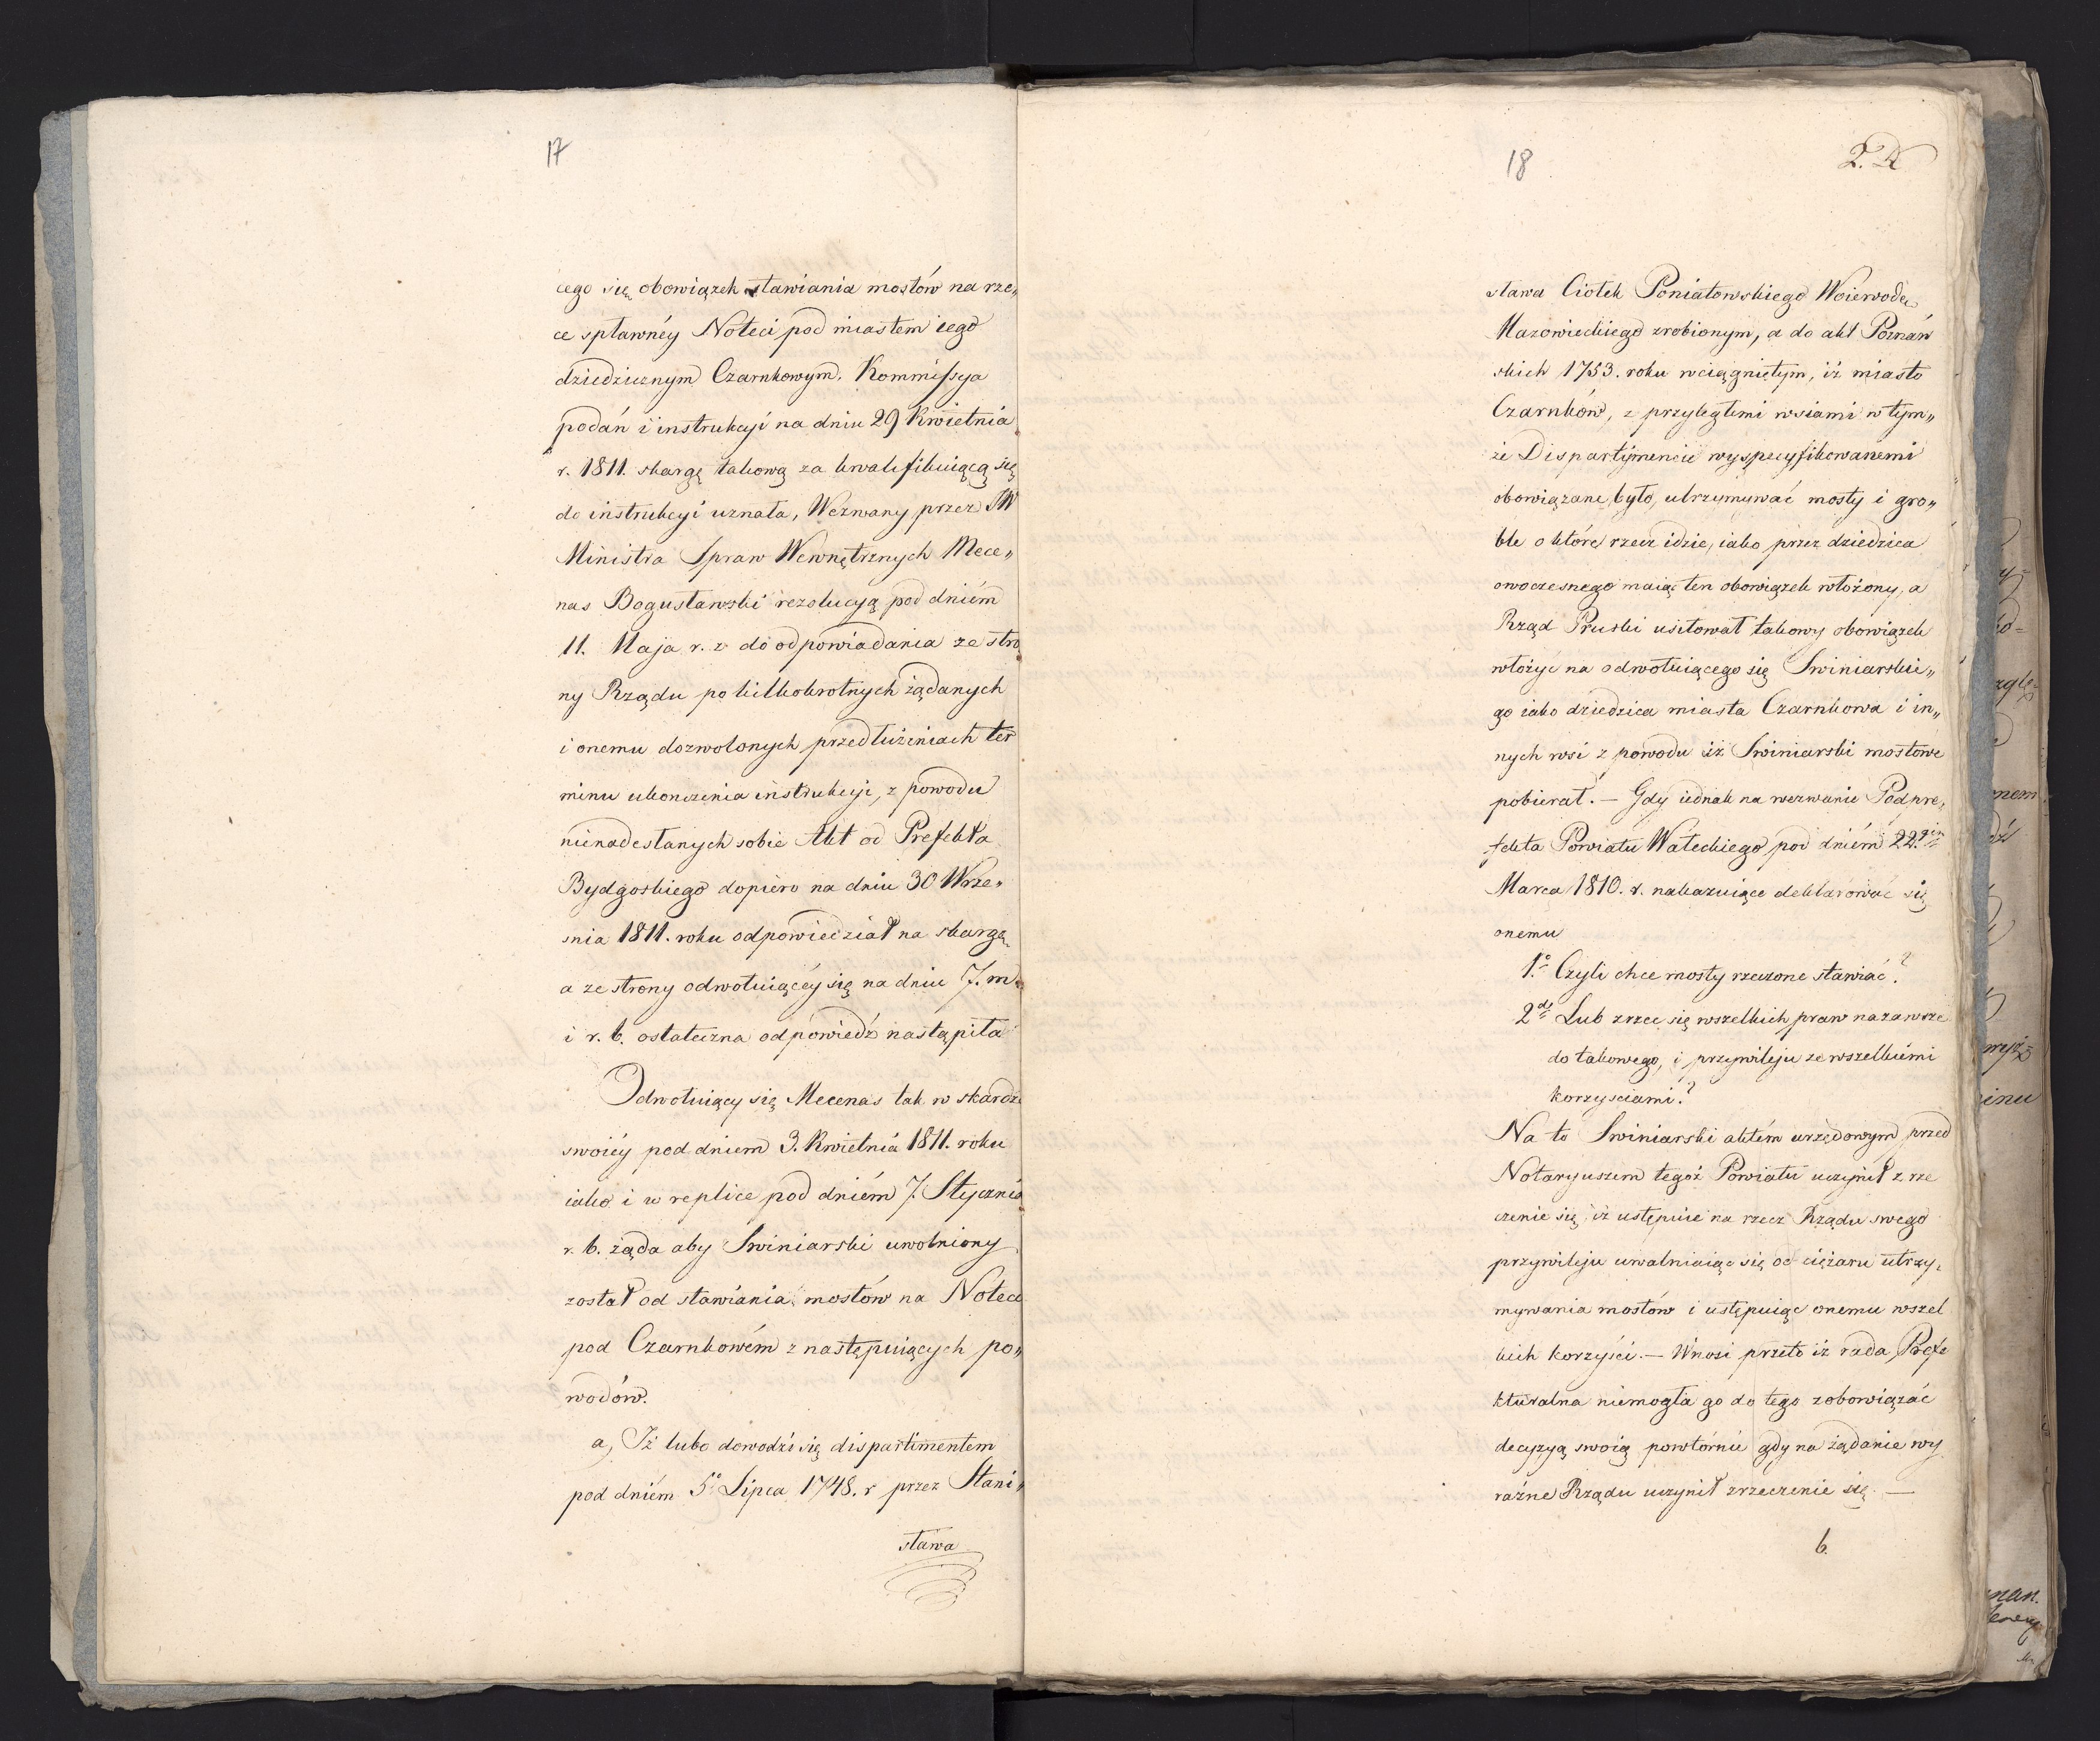 17
cego się obowiązek stawiania mostów na rze„
ce spławnéy Noteci pod miastem iego
dziedzicznym Czarnkowym. Kommissya
podań i instrukcyi na dniu 29 Kwietnia
r. 1811. skargę takową za kwalifikuiącą się
do instrukcyi uznała, Wezwany przez JW
Ministra Spraw Wewnętrznych Mece„
nas Bogusławski rezolucyą pod dniém
11. Maja r. z do odpowiadania ze stro
ny Rządu po kilkokrotnych żądanych
i onemu dozwolonych przedłużeniach ter
minu ukonczenia instrukcyi, z powodu
nienadesłanych sobie Akt od Prefekta
Bydgoskiego dopiéro na dniu 30 Wrze„
snia 1811. roku odpowiedział na skargę
a ze strony odwołuiącéy się na dniu 7. m.
i r. b. ostateczna odpowiedź nastąpiła
Odwołuiący się Mecenas tak w skardze
swoiéy pod dniem 3. Kwietnia 1811. roku
iako i w replice pod dniém 7. Stycznia
r. b. żąda aby Swiniarski uwolniony
został od stawiania mostów na Notece
pod Czarnkowém z następuiących po„
wodów.
a, Iż lubo dowodzi się dispartimentem
pod dniém 5° Lipca 1748. r przez Stani„
sława
18
2. D
sława Ciołek Poniatowskiego Woiewodę
Mazowieckiego zrobionym, a do akt Poznań
skich 1753. roku wciągniętym, iż miasto
Czarnków, z przyległemi wsiami w tym„
że Dispartymencie wyspecyfikowanemi
obowiązane było, utrzymywać mosty i gro„
ble o które rzecz idzie, iako przez dziedzica
owoczesnego maiąc ten obowiązek włożony, a
Rząd Pruski usiłował takowy obowiązek
włożyć na odwołuiącego się Swiniarskie„
go iako dziedzica miasta Czarnkowa i in„
nych wsi z powodu iż Swiniarski mostowe
pobierał. — Gdy iednak na wezwanie Podpre„
fekta Powiatu Wałeckiego pod dniém 22.gim
Marca 1810. r. nakazuiące deklarować się
onemu
1.° Czyli chce mosty rzeczone stawiać?
2do Lub zrzec się wszelkich praw na zawsze
do takowego, i przywileju ze wszelkiemi
korzysciami?
Na to Swiniarski aktém urzędowym przed
Notaryuszem tegoż Powiatu uczynił zrze
czenie się, iż ustępuie na rzecz Rządu swego
przywileju uwalniaiąc się od ciężaru utrzy„
mywania mostów i ustępuiąc onemu wszel
kich korzyści. — Wnosi przeto iż rada Prefe
kturalna niemogła go do tego zobowiązać
decyzyą swoią powtórnie gdy na żądanie wy
raźne Rządu uczynił zrzeczenie się. —
b.